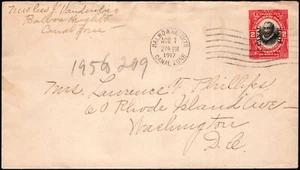 Balboa Heights
Canal Zone
BALBOA HEIGHTS
AUG 7
2 PM
1917
CANAL ZONE
2 2
1956 299
Mrs. Lawrence F. Phillips
60 Rhode Island Ave
Washington
D.C.